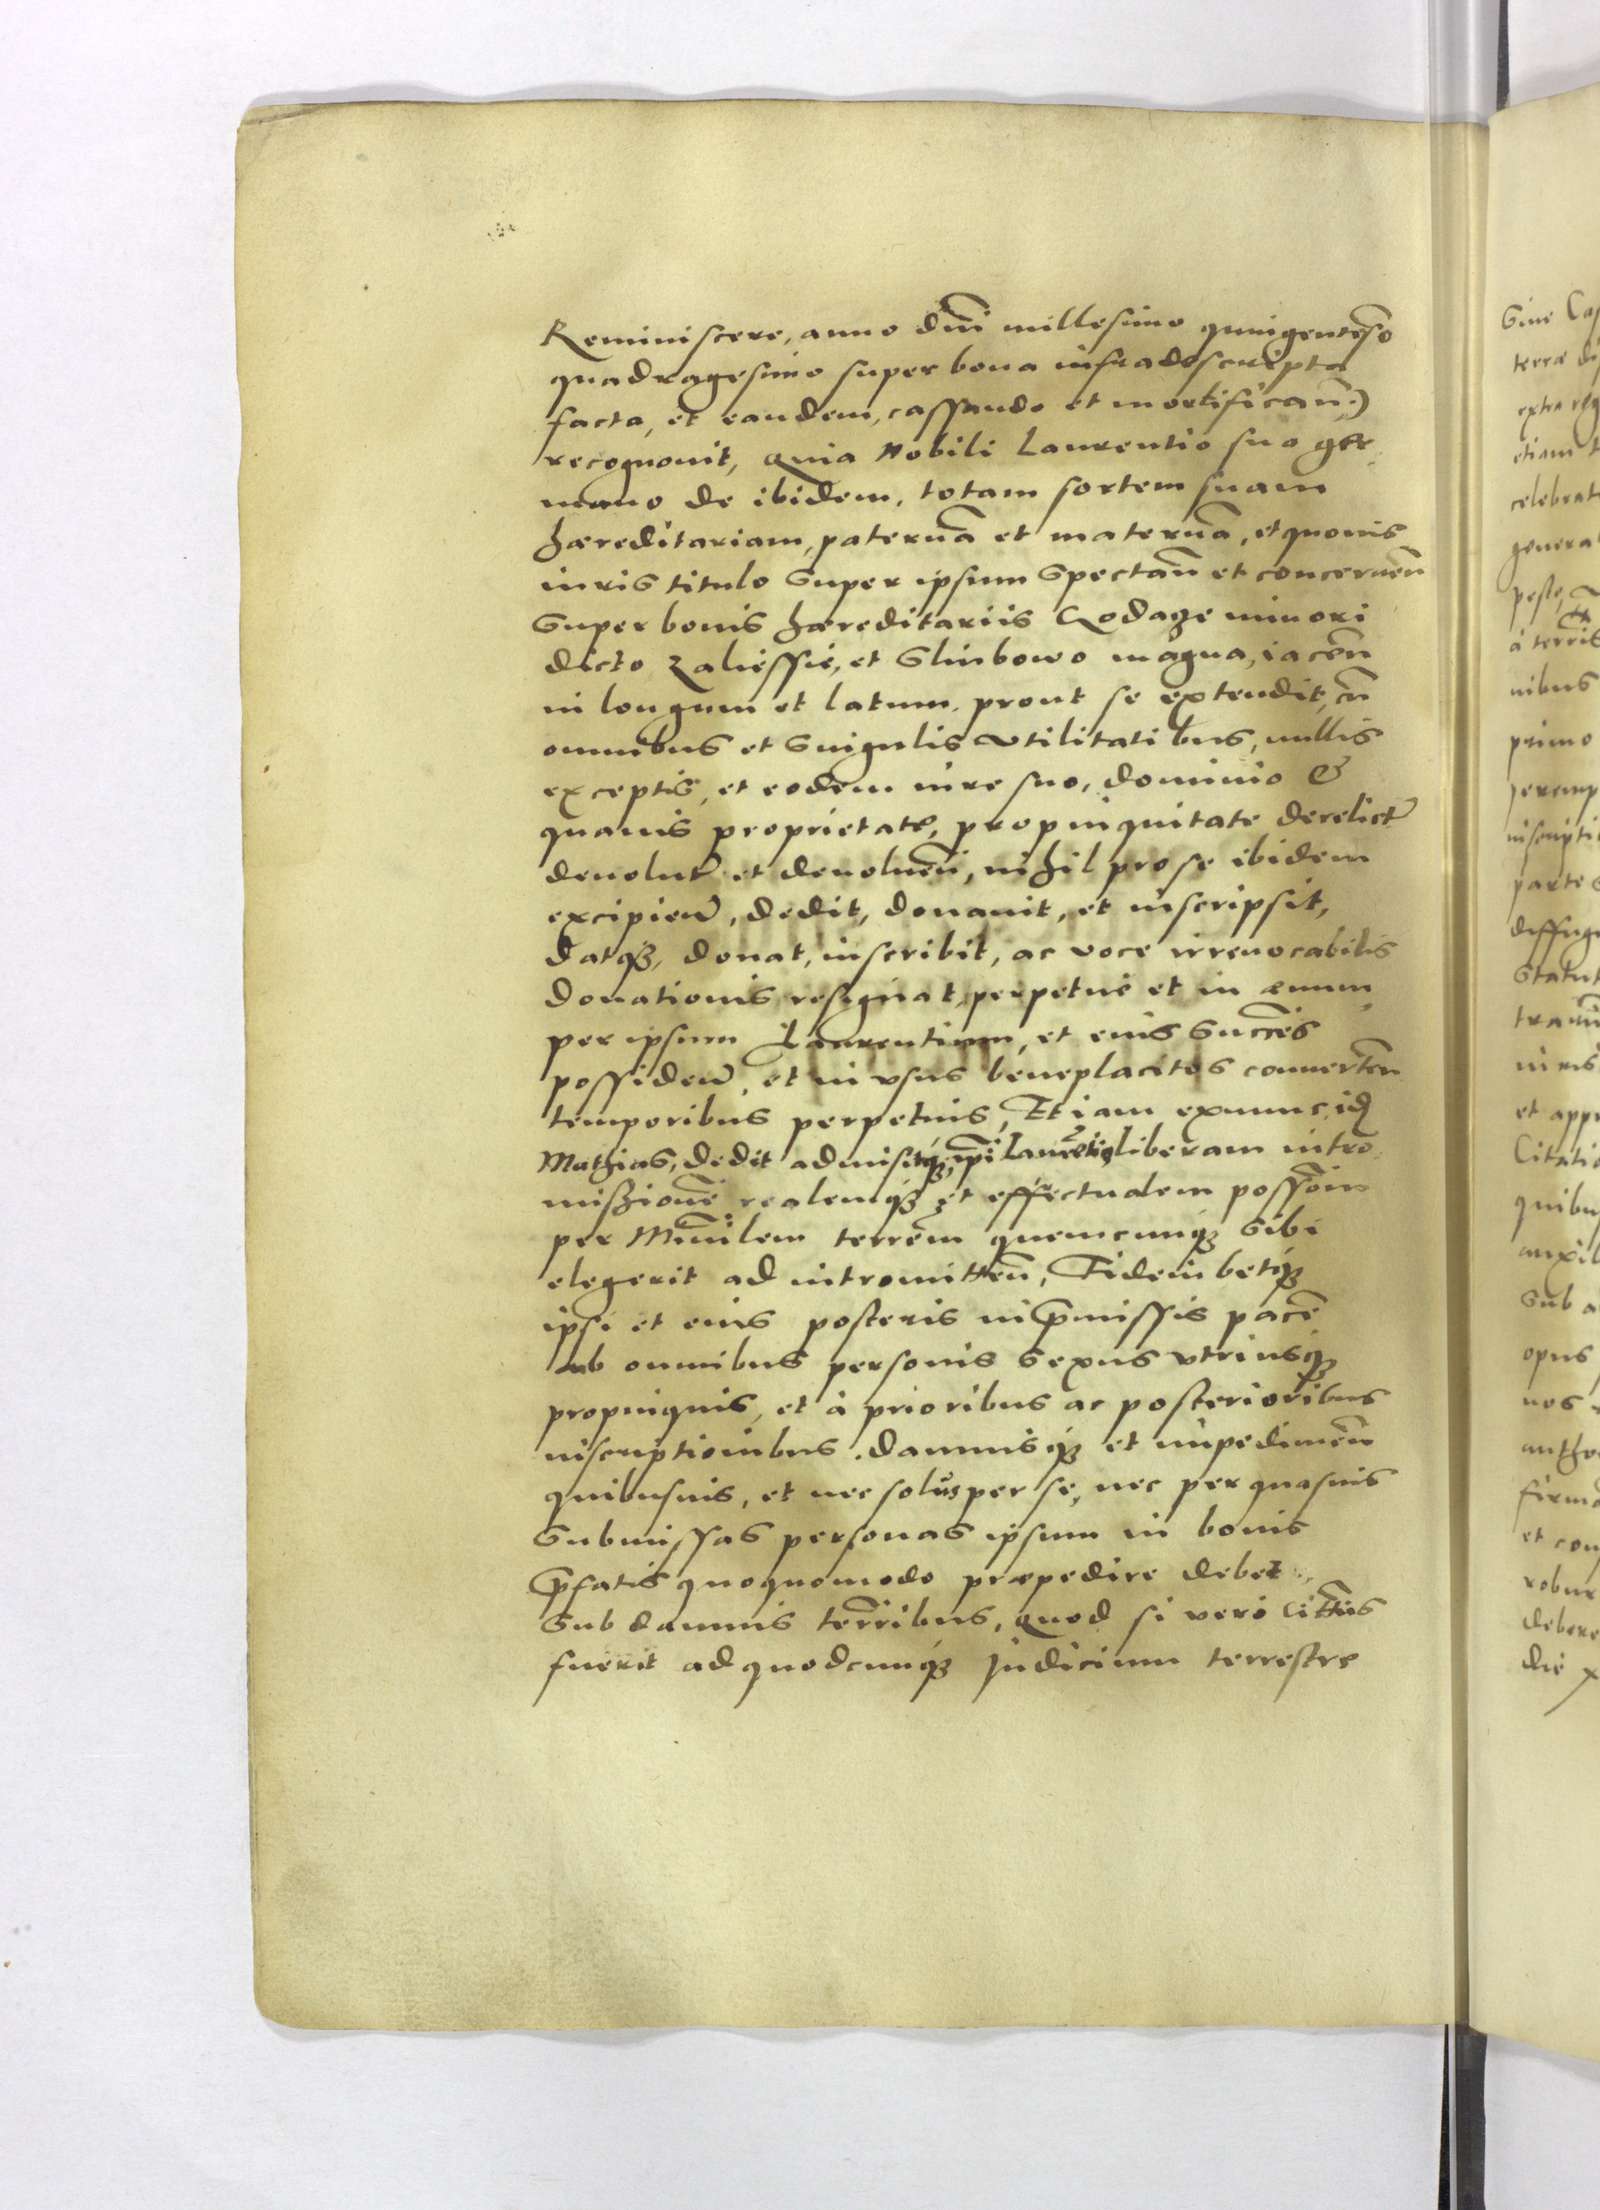 Reminiscere, anno dni millesimo quingenteso
quadragesimo super bona infradescripta
facta, et eandem, cassando et mortifican.)
recognovit, quia Nobili Laurentio suo ger
mano de ibidem, totam sortem suam
hæreditariam, paternã et maternã, et quovis
iuris titulo super ipsum spectañ et concerneñ
super bonis hæreditariis minori
dicto Zaliessie, et Glinbowo magna, iaceñ
in longum et latum, prout se extendit, cũ
omnibus et singulis utilitatibus, nullis
exceptis, et eodem iure suo, dominio &
quavis proprietate, propinquitate derelict
devolut et devolveñ, nihil pro se ibidem
excipieñ, dedit, donavit, et inscripsit,
datq3, donat, inscribit, ac voce irrevocabilis
donationis resignat, perpetuè et in ævum,
per ipsum Laurentium, et eius succes
possideñ, et in usus beneplacitos converteñ
temporibus perpetuis, Et iam exnunc, id
Mathias, dedit admisitq3, ipsi Laurẽtio liberam intro
miszionẽ realemq3 et effectualem possoim
per Ministlem terrem quemcunq3 sibi
elegerit ad intromitteñ, Fideiubetq3
ipsi et eius posteris in p̃missis pacẽ
ab omnibus personis sexus utriusq3
propinquis, et à prioribus ac posterioribus
inscriptionibus, damnisq3 et impedimeñ
quibusvis, et nec solus per se, nec per quasvis
submissas personas ipsum in bonis
p̃fatis quoquomodo præpedire debet,
sub damnis terribus, quod si vero citus
fuerit ad quodcunq3 Judicium terrestre